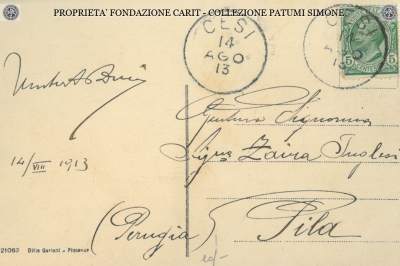 PROPRIETA' FONDAZIONE CARIT - COLLEZIONE PATUMI SIMONE
CESI
14
AGO
13
CESI
AGO
13
5
14/VIII 1913
Gentma Signorina
Signa Zaira Inglesi
Pila
(Perugia)
21063 Ditta Guriani - Piacenza